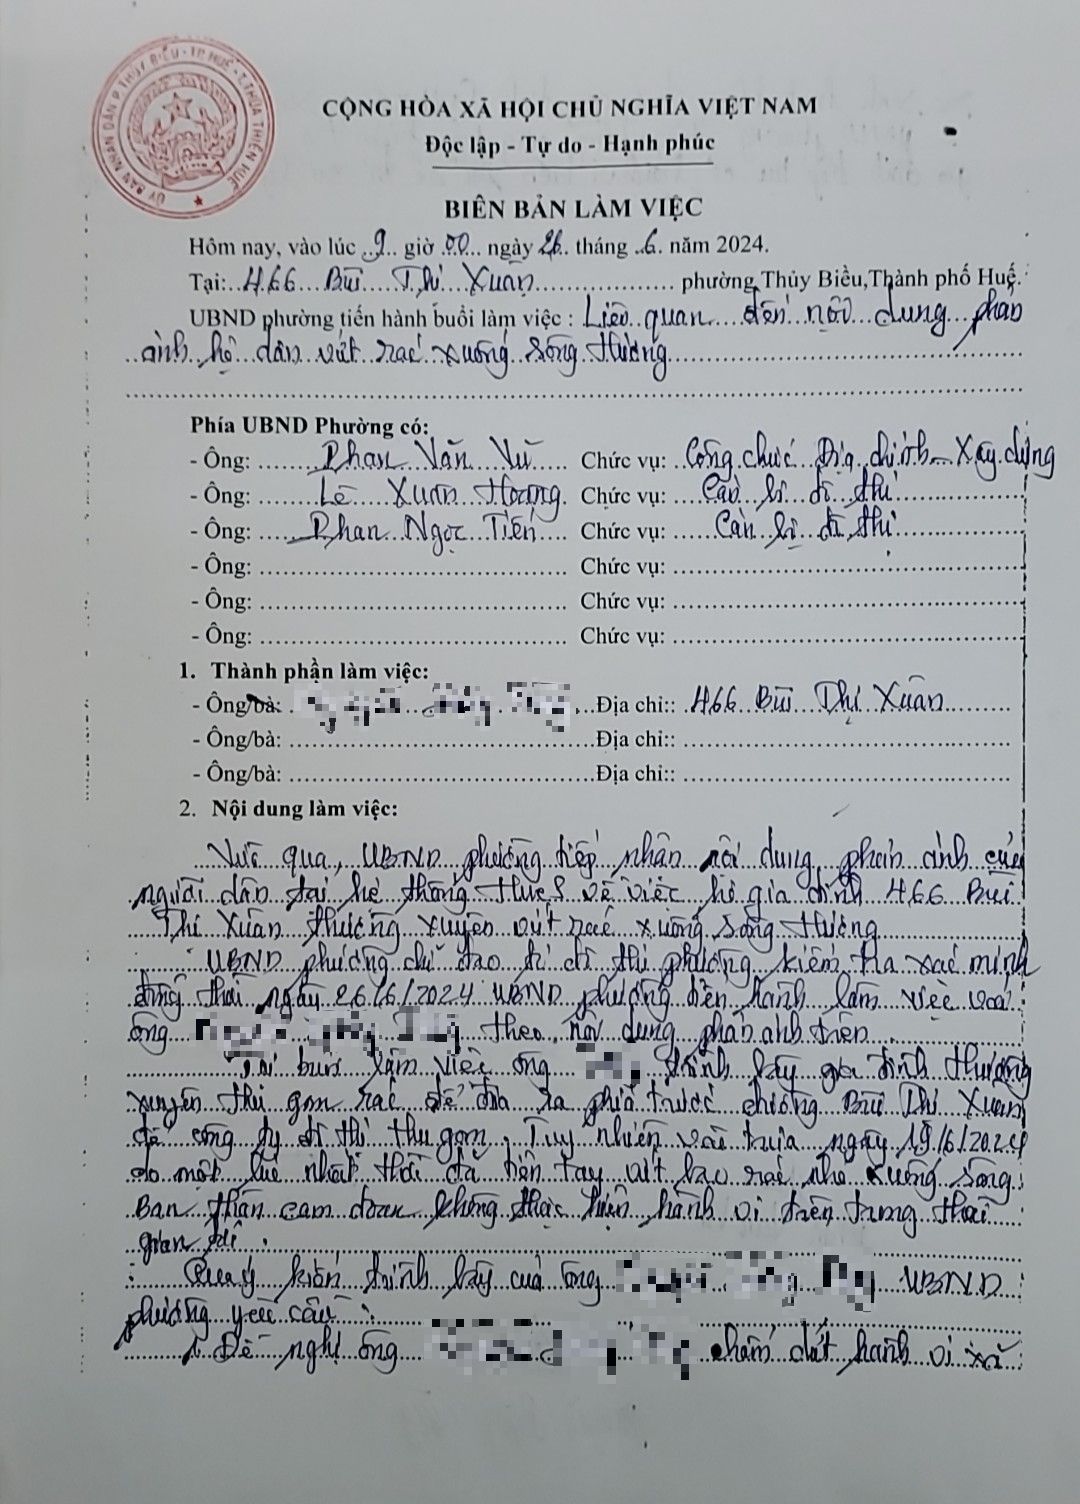 ỦY BAN NHÂN DÂN P. THỦY BIỀU - TP HUẾ - T. THỪA THIÊN HUẾ
CỘNG HÒA XÃ HỘI CHỦ NGHĨA VIỆT NAM
Độc lập - Tự do - Hạnh phúc
BIÊN BẢN LÀM VIỆC
Hôm nay, vào lúc 9 giờ 00 ngày 26 tháng 6 năm 2024.
Tại: 466 Bùi Thị Xuân phường Thủy Biều, Thành phố Huế.
UBND phường tiến hành buổi làm việc : Liên quan đến nội dung phản
ánh hộ dân vứt rác xuống sông Hương
Phía UBND Phường có:
- Ông: Phan Văn Vũ Chức vụ: Công chức Địa chính - Xây dựng
- Ông: Lê Xuân Hoàng Chức vụ: Cán bộ đô thị
- Ông: Phan Ngọc Tiến Chức vụ: Cán bộ đô thị
- Ông: Chức vụ:
- Ông: Chức vụ:
- Ông: Chức vụ:
1. Thành phần làm việc:
- Ông/bà: Địa chỉ:: 466 Bùi Thị Xuân
- Ông/bà: Địa chỉ::
- Ông/bà: Địa chỉ::
2. Nội dung làm việc:
Vừa qua, UBND phường tiếp nhận nội dung phản ánh của
người dân tại hệ thống HueS về việc hộ gia đình 466 Bùi
Thị Xuân thường xuyên vứt rác xuống sông Hương
UBND phường chỉ đạo đô thị phường kiểm tra xác minh
đồng thời ngày 26/6/2024 UBND phường tiến hành làm việc với
ông theo nội dung phản ánh trên
Tại buổi làm việc ông trình bày gia đình thường
xuyên thu gom rác để đưa ra phía trước đường Bùi Thị Xuân
để công ty đô thị thu gom. Tuy nhiên vào trưa ngày 19/6/2024
do một lúc nhất thời đã tiện tay vứt bao rác nhỏ xuống sông
Bản thân cam đoan không thực hiện hành vi trên trong thời
gian
Qua ý kiến trình bày của ông UBND
phường yêu cầu:
1. Đề nghị ông chấm dứt hành vi xả